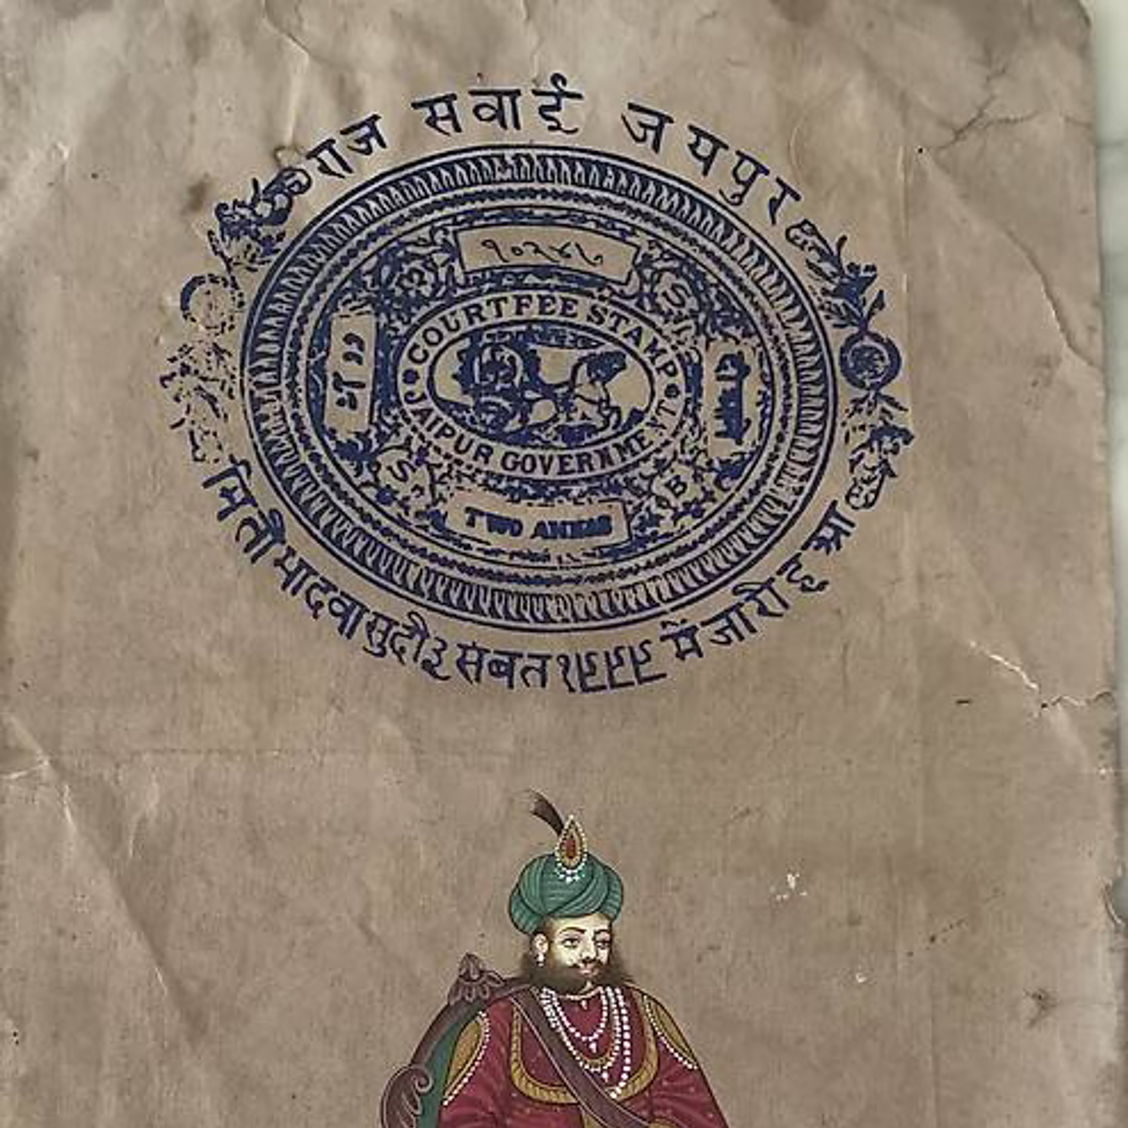 राज सवाई जयपुर
१०२४६
COURT FEE STAMP
JAIPUR GOVERNMENT
S
S
B
TWO ANNAS
मिती भादवा सुदी ३ संबत १९९९ में जारी हुआ